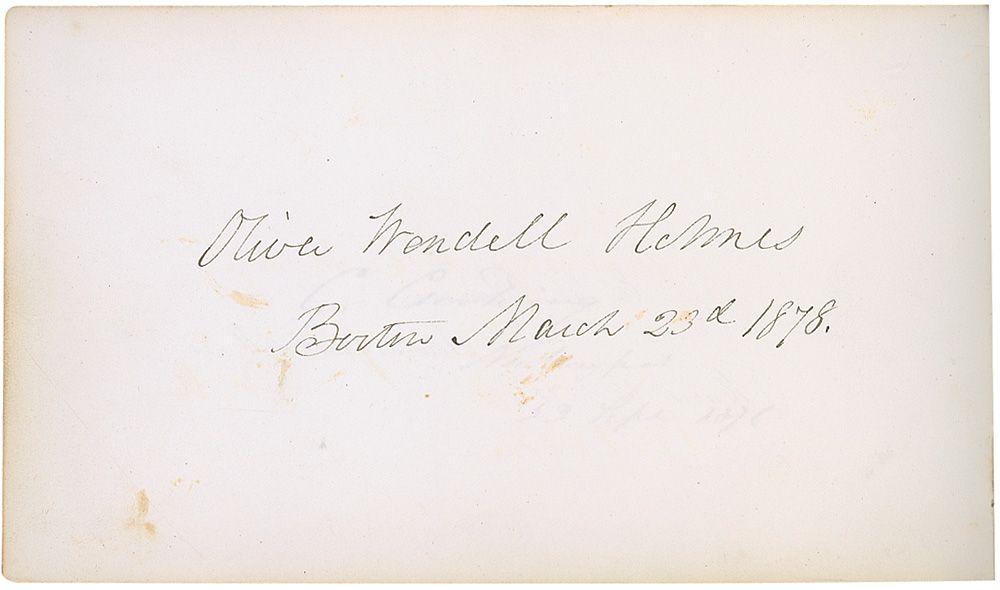 Oliver Wendell Holmes
Boston March 23d 1878.